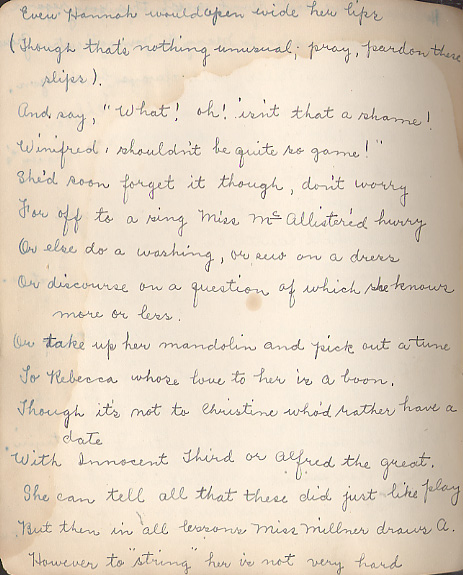 Even Hannah would open wide her lips
(Though that's nothing unusual; pray, pardon these
slips).
And say, "What! oh! isn't that a shame!
Winifred, shouldn't be quite so game!"
She'd soon forget it though, don't worry
For off to a sing Miss McAllister'd hurry
Or else do a washing, or sew on a dress
Or discourse on a question of which she knows
more or less.
Or take up her mandolin and pick out a tune
To Rebecca whose love to her is a boon.
Though it's not to Christine who'd rather have a
date
With Innocent Third or Alfred the great.
She can tell all that these did just like play
But then in all lessons Miss Millner draws A.
However to "string" her is not very hard